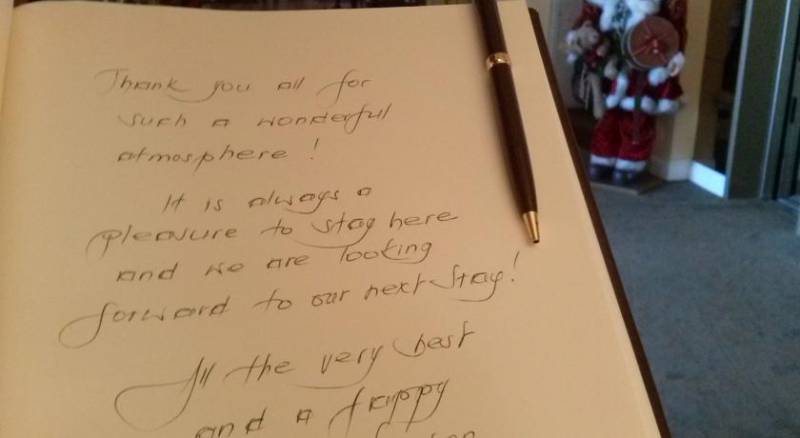 Thank you all for
such a wonderful
atmosphere!
It is always a
pleasure to stay here
and we are looking
forward to our next stay!
All the very best
and a happy